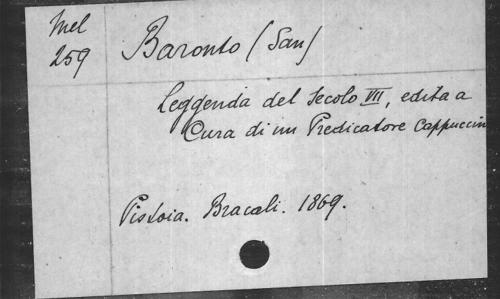 Mel
259
Baronto (San)
Leggenda del Secolo VII, edita a
Cura di un Predicatore Cappuccin
Pistoia. Bracali. 1869.